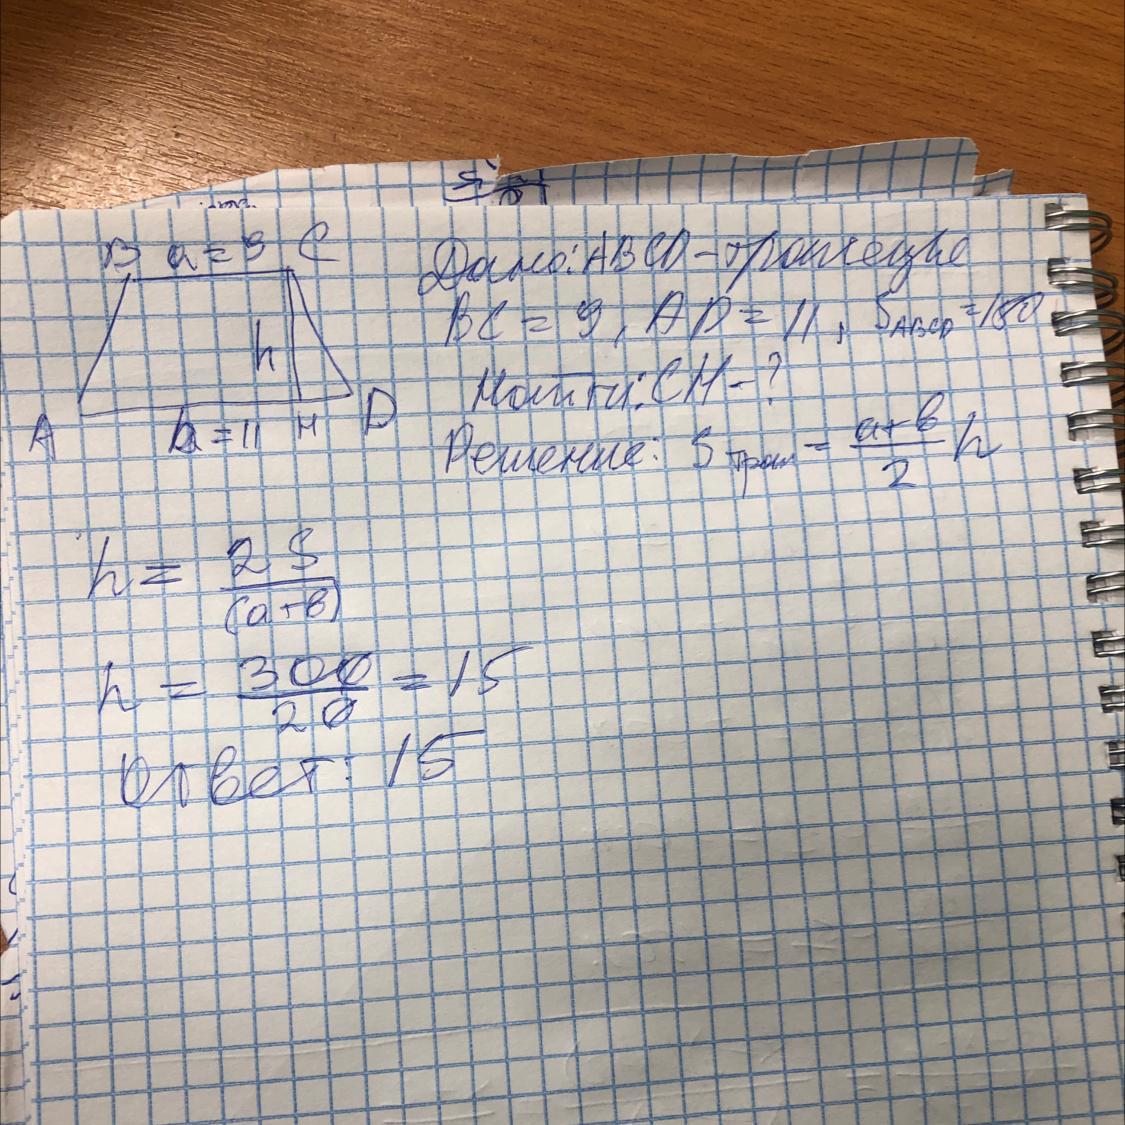 B a = 9 C
h
A b = 11 H D
Дано: ABCD - трапеция
BC = 9, AD = 11, SABCD = 150
Найти: CH - ?
Решение: Sтрап = a+b/2 h
h = 2S/(a+b)
h = 300/20 = 15
Ответ: 15